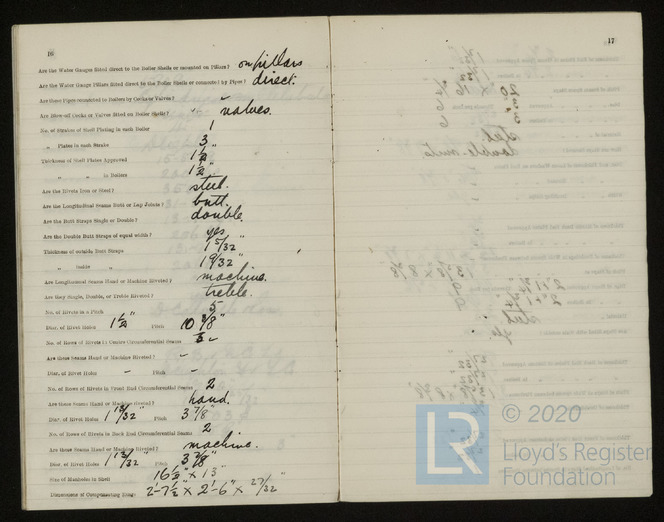 16
Are the Water Gauges fitted direct to the Boiler Shells or mounted on Pillars? on pillars
Are the Water Gauge Pillars fitted direct to the Boiler Shells or connected by Pipes? direct.
Are these Pipes connected to Boilers by Cocks or Valves? -
Are Blow-off Cocks or Valves fitted on Boiler Shells? valves.
No. of Strakes of Shell Plating in each Boiler 1
" Plates in each Strake 3
Thickness of Shell Plates Approved 1 1/2"
" " in Boilers 1 1/2"
Are the Rivets Iron or Steel? steel.
Are the Longitudinal Seams Butt or Lap Joints? butt.
Are the Butt Straps Single or Double? double.
Are the Double Butt Straps of equal width? yes.
Thickness of outside Butt Straps 1 5/32"
" inside " 1 9/32"
Are Longitudinal Seams Hand or Machine Riveted? machine.
Are they Single, Double, or Treble Riveted? treble.
No. of Rivets in a Pitch 5
Diar. of Rivet Holes 1 1/2" Pitch 10 3/8"
No. of Rows of Rivets in Centre Circumferential Seams -
Are these Seams Hand or Machine Riveted? -
Diar. of Rivet Holes - Pitch -
No. of Rows of Rivets in Front End Circumferential Seams 2
Are these Seams Hand or Machine riveted? hand.
Diar. of Rivet Holes 1 15/32" Pitch 3 7/8
No. of Rows of Rivets in Back End Circumferential Seams 2
Are these Seams Hand or Machine Riveted? machine.
Diar. of Rivet Holes 1 15/32" Pitch 3 7/8"
Size of Manholes in Shell 16 1/2" x 13"
Dimensions of Compensating Rings 2'-7 1/2" x 2'-6" x 27/32"
17
LR
© 2020
Lloyd's Register
Foundation